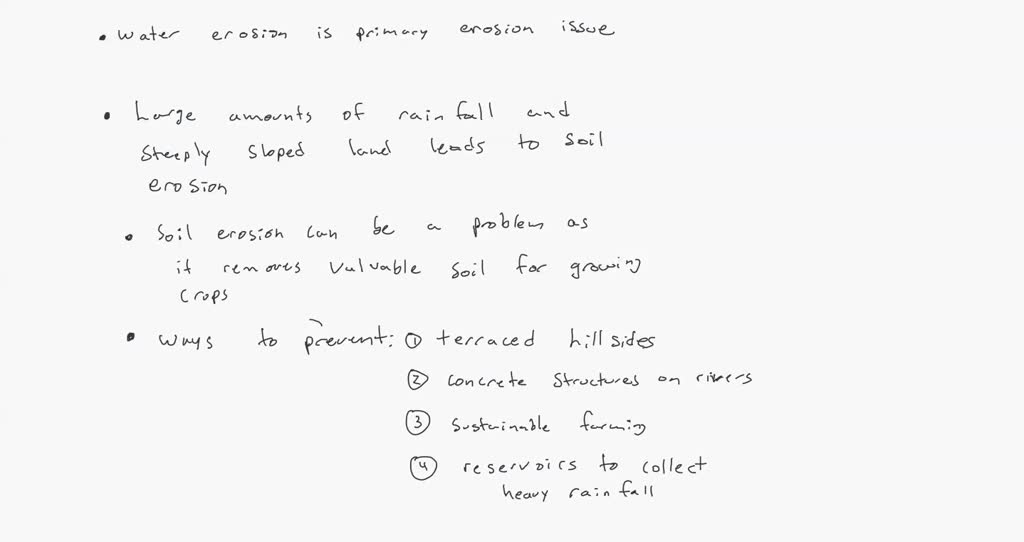 • Water erosion is primary erosion issue
• Large amounts of rainfall and
steeply sloped land leads to soil
erosion
• Soil erosion can be a problem as
it removes valuable soil for growing
crops
• ways to prevent: ① terraced hillsides
② concrete structures on rivers
③ sustainable farming
④ reservoirs to collect
heavy rainfall